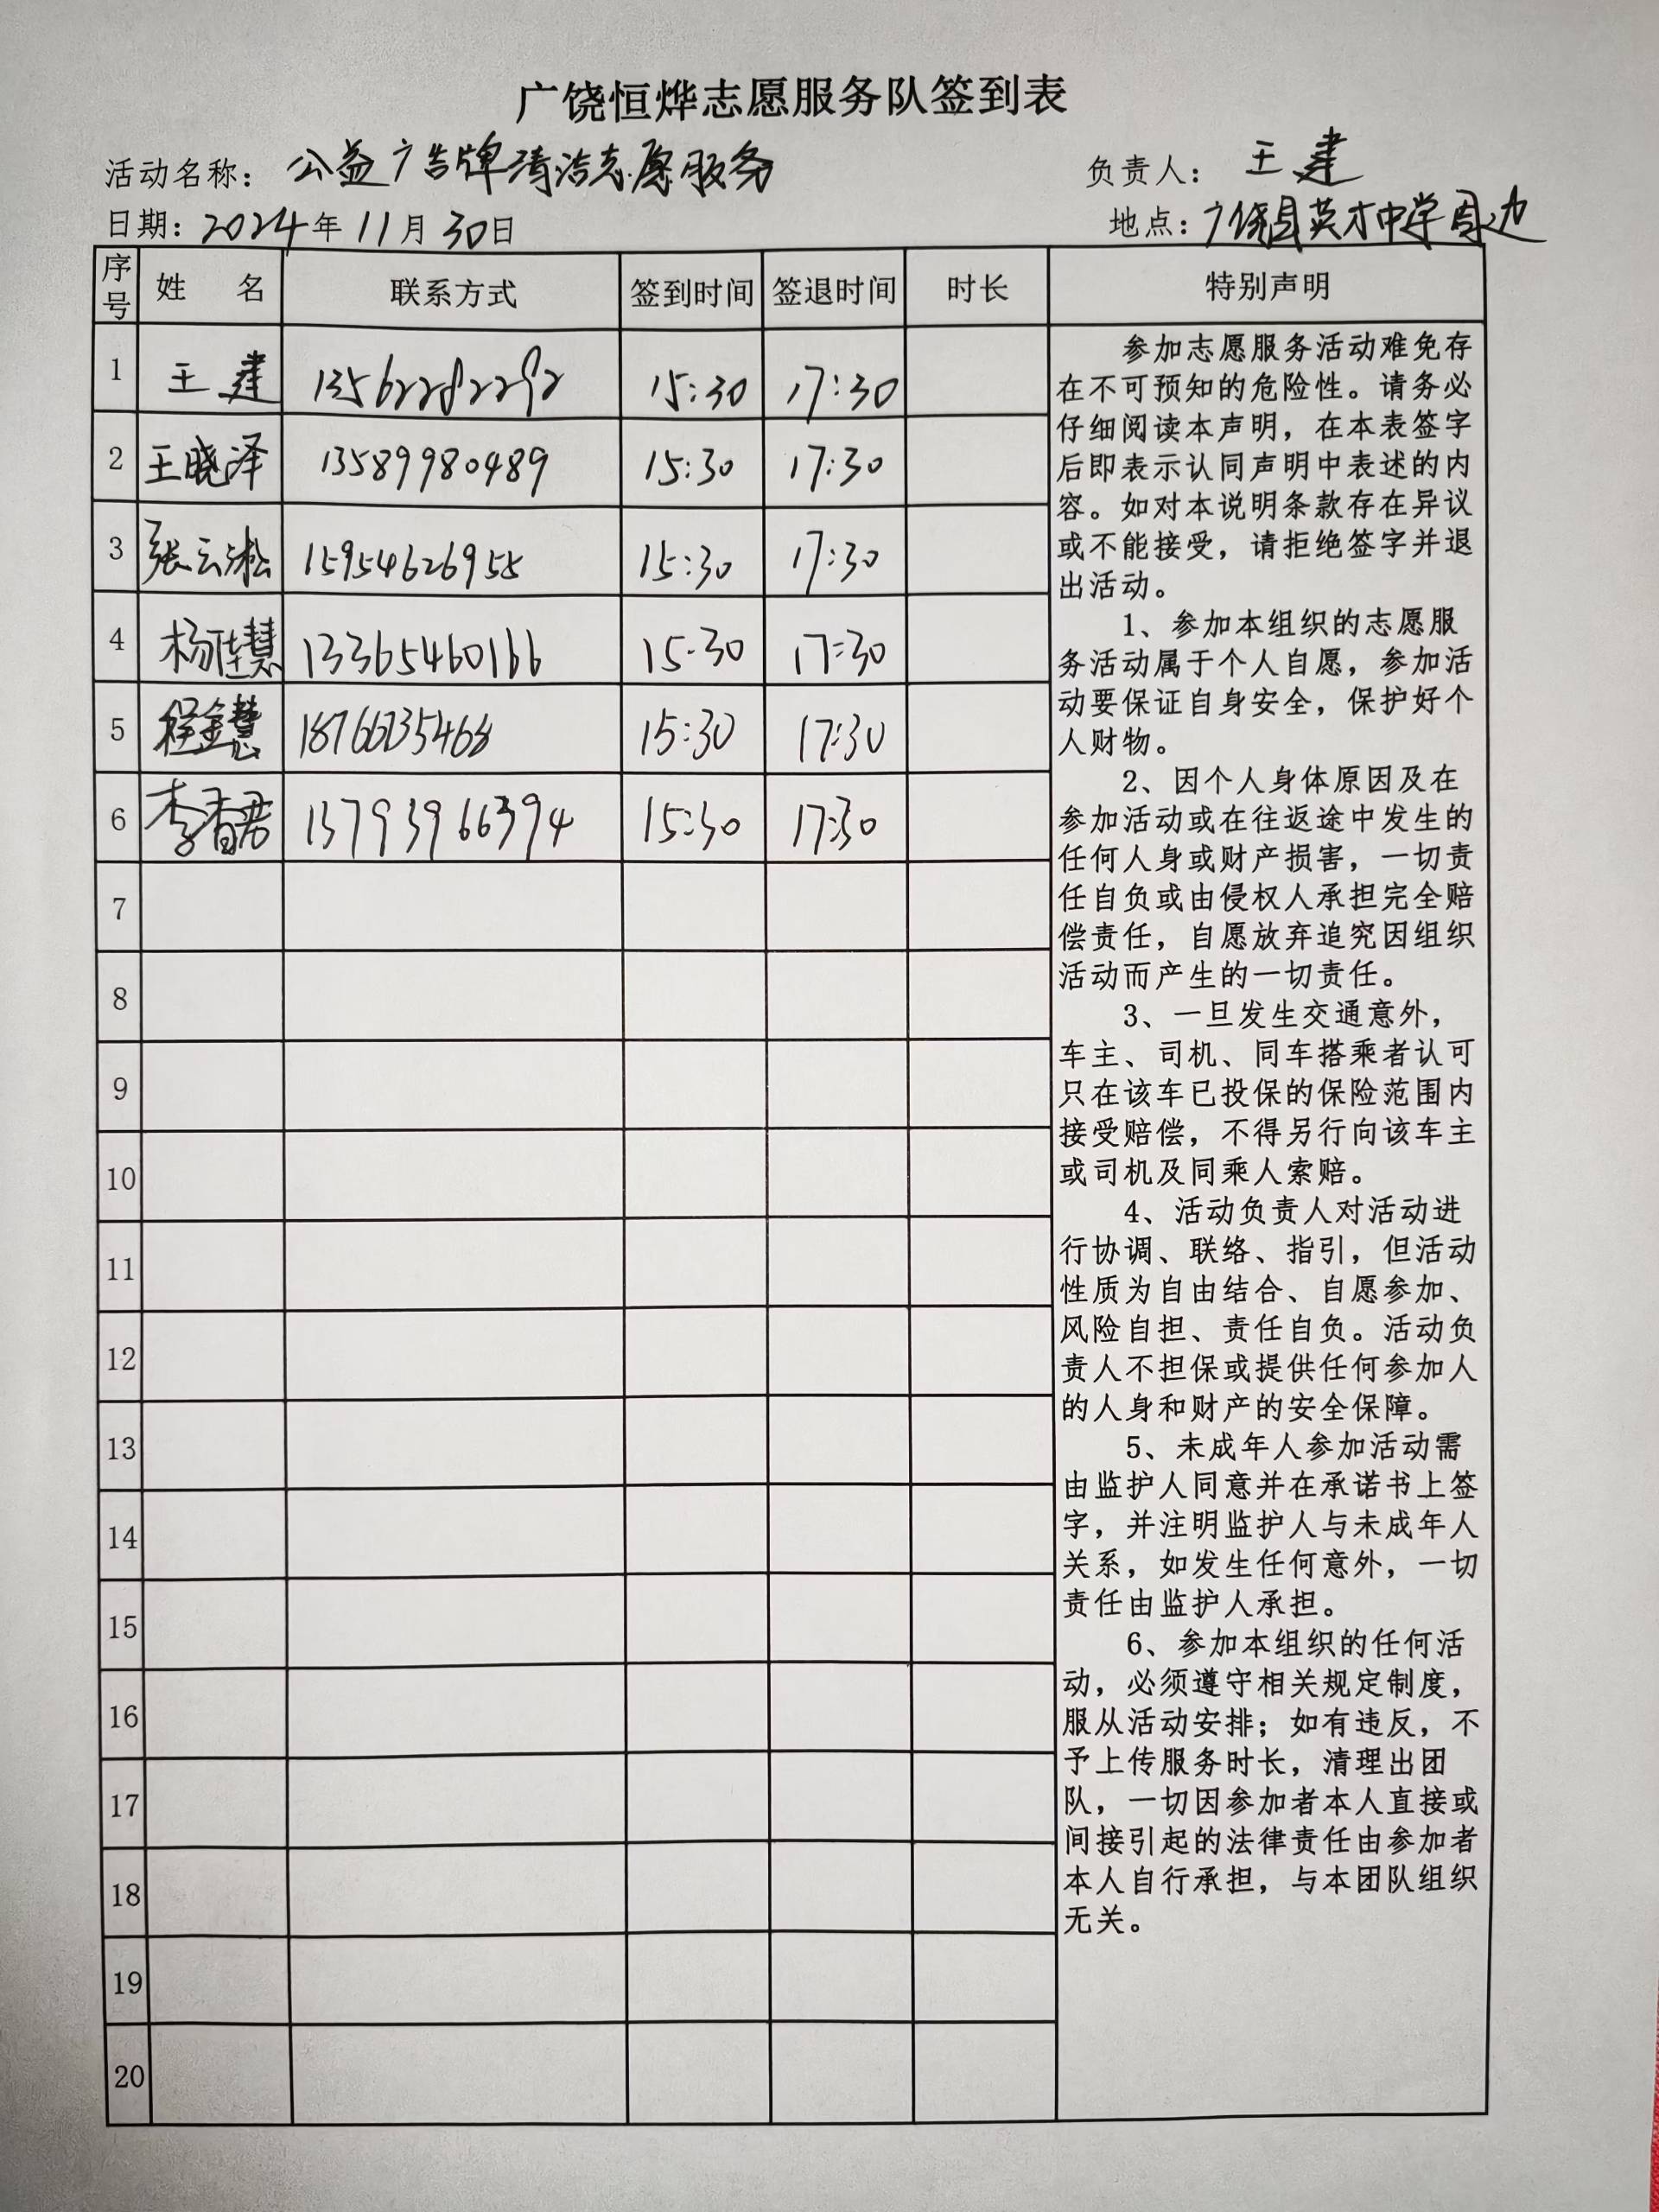 广饶恒烨志愿服务队签到表
活动名称：公益广告牌清洁志愿服务 负责人：王建
日期：2024年11月30日 地点：广饶县英才中学周边
序号 姓 名 联系方式 签到时间 签退时间 时长 特别声明
1 王建 13562282292 15:30 17:30
2 王晓泽 13589980489 15:30 17:30
3 张云淞 15954626955 15:30 17:30
4 杨佳慧 13365460166 15:30 17:30
5 程金慧 15:30 17:30
6 李香君 13793966394 15:30 17:30
7
8
9
10
11
12
13
14
15
16
17
18
19
20
参加志愿服务活动难免存
在不可预知的危险性。请务必
仔细阅读本声明，在本表签字
后即表示认同声明中表述的内
容。如对本说明条款存在异议
或不能接受，请拒绝签字并退
出活动。
1、参加本组织的志愿服
务活动属于个人自愿，参加活
动要保证自身安全，保护好个
人财物。
2、因个人身体原因及在
参加活动或在往返途中发生的
任何人身或财产损害，一切责
任自负或由侵权人承担完全赔
偿责任，自愿放弃追究因组织
活动而产生的一切责任。
3、一旦发生交通意外，
车主、司机、同车搭乘者认可
只在该车已投保的保险范围内
接受赔偿，不得另行向该车主
或司机及同乘人索赔。
4、活动负责人对活动进
行协调、联络、指引，但活动
性质为自由结合、自愿参加、
风险自担、责任自负。活动负
责人不担保或提供任何参加人
的人身和财产的安全保障。
5、未成年人参加活动需
由监护人同意并在承诺书上签
字，并注明监护人与未成年人
关系，如发生任何意外，一切
责任由监护人承担。
6、参加本组织的任何活
动，必须遵守相关规定制度，
服从活动安排；如有违反，不
予上传服务时长，清理出团
队，一切因参加者本人直接或
间接引起的法律责任由参加者
本人自行承担，与本团队组织
无关。